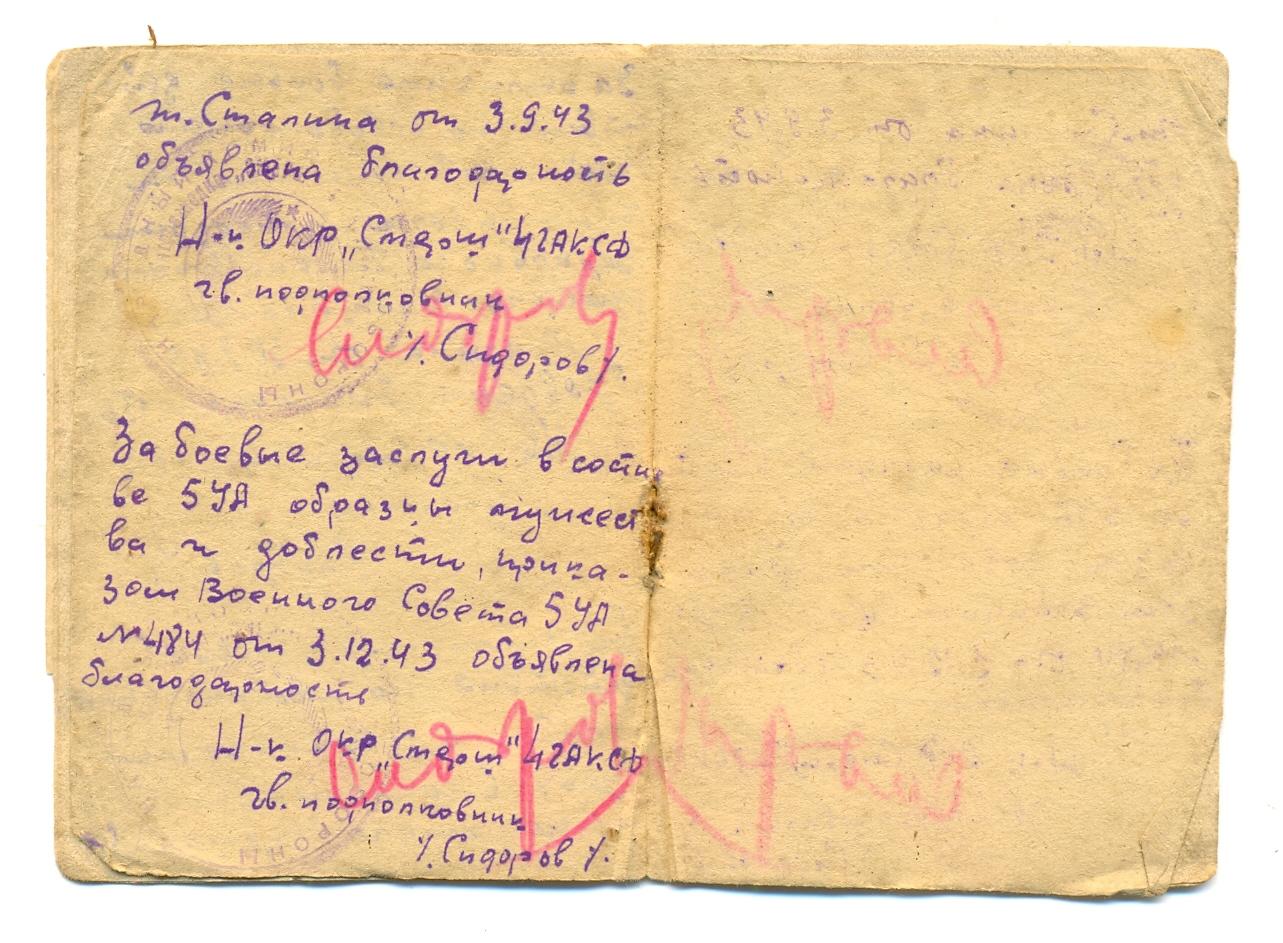 т. Сталина от 3.9.43
объявлена благодарность
Н-к ОКР „Смерш" 4 ГАКСД
гв. подполковник
/. Сидоров /.
Сидоров
За боевые заслуги в соста
ве 5 УА образцы мужест
ва и доблести, прика-
зом Военного Совета 5 УА
№ 484 от 3.12.43 объявлена
благодарность
Н-к ОКР „Смерш" 4 ГАКСД
гв. подполковник
/. Сидоров /.
Сидоров
ОБОРОНЫ
ОБОРОНЫ